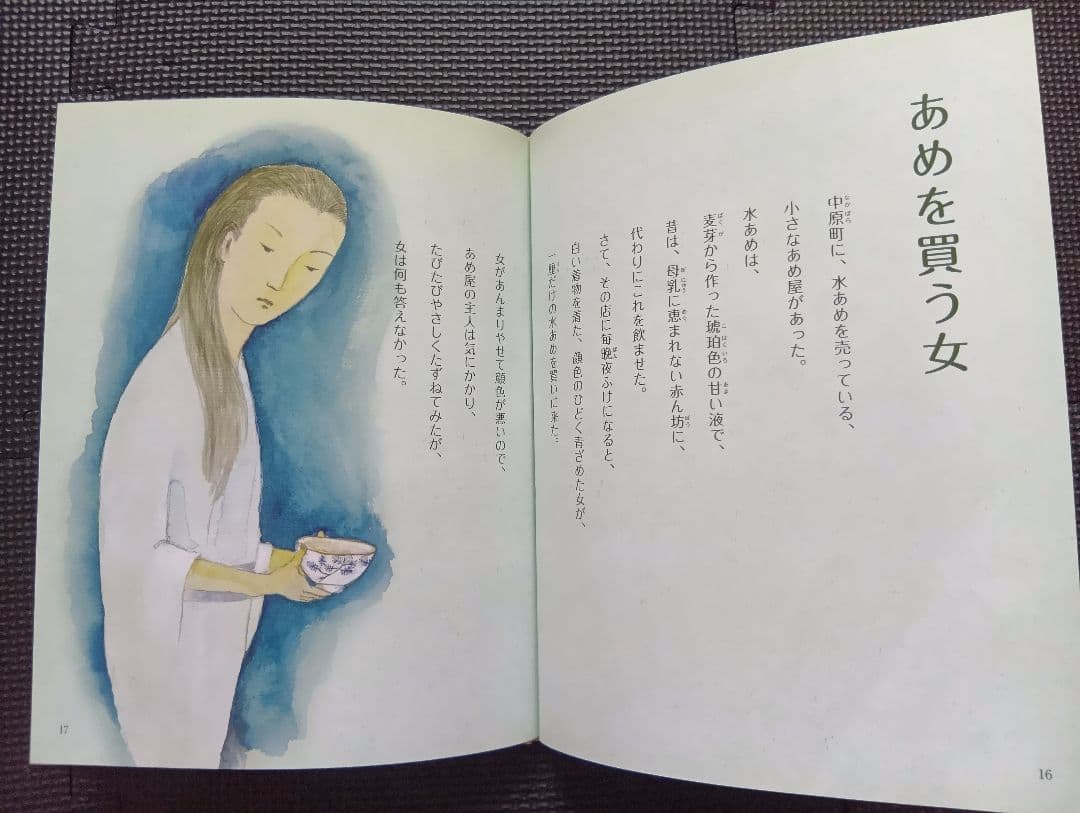 あめを買う女
中原町に、水あめを売っている、
小さなあめ屋があった。
水あめは、
麦芽から作った琥珀色の甘い液で、
昔は、母乳に恵まれない赤ん坊に、
代わりにこれを飲ませた。
さて、その店に毎晩夜ふけになると、
白い着物を着た、顔色のひどく青ざめた女が、
一厘だけの水あめを買いに来た。
女があんまりやせて顔色が悪いので、
あめ屋の主人は気にかかり、
たびたびやさしくたずねてみたが、
女は何も答えなかった。
16
17